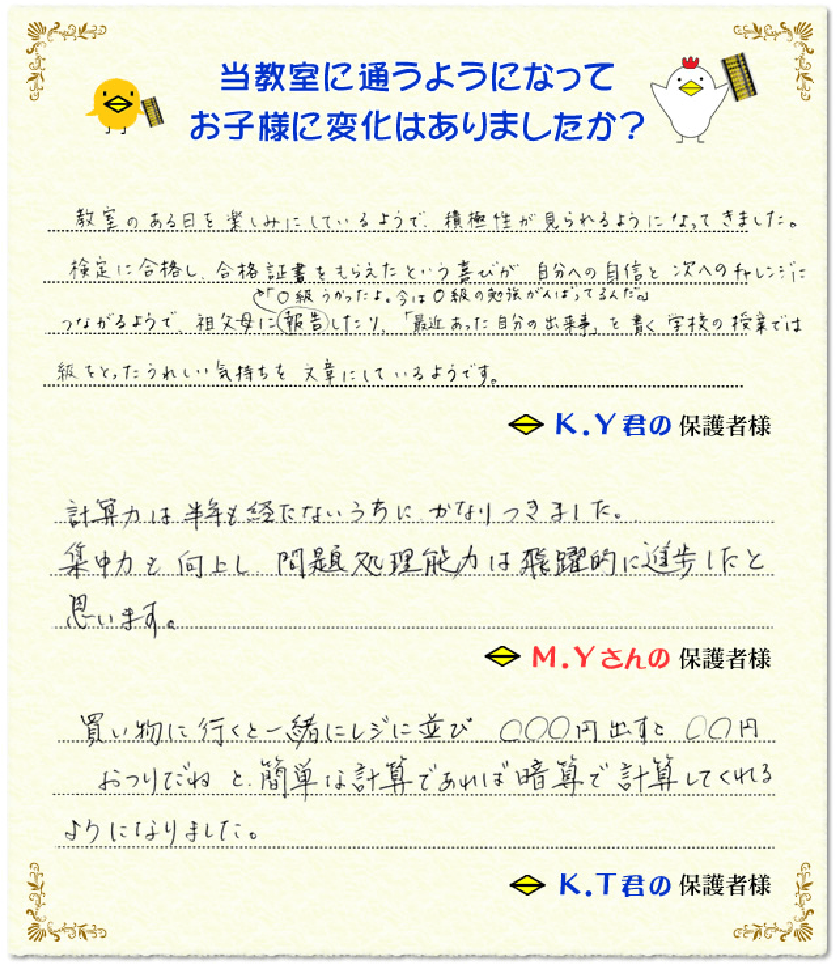 当教室に通うようになって
お子様に変化はありましたか？
教室のある日を楽しみにしているようで、積極性が見られるようになってきました。
検定に合格し、合格証書をもらえたという喜びが 自分への自信と 次へのチャレンジに
「○級うかったよ。今は○級の勉強がんばってるんだ。」
つながるようで、祖父母に報告したり、「最近あった自分の出来事」を書く学校の授業では
級をとったうれしい気持ちを 文章にしているようです。
K.Y君の 保護者様
計算力は半年も経たないうちに かなりつきました。
集中力も向上し、問題処理能力は飛躍的に進歩したと
思います。
M.Yさんの 保護者様
買い物に行くと一緒にレジに並び ○○○円出すと ○○円
おつりだね と、簡単な計算であれば暗算で計算してくれる
ようになりました。
K.T君の 保護者様